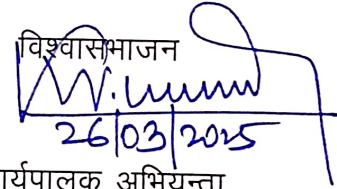 विश्वासभाजन
26/03/2025
र्यपालक अभियन्ता